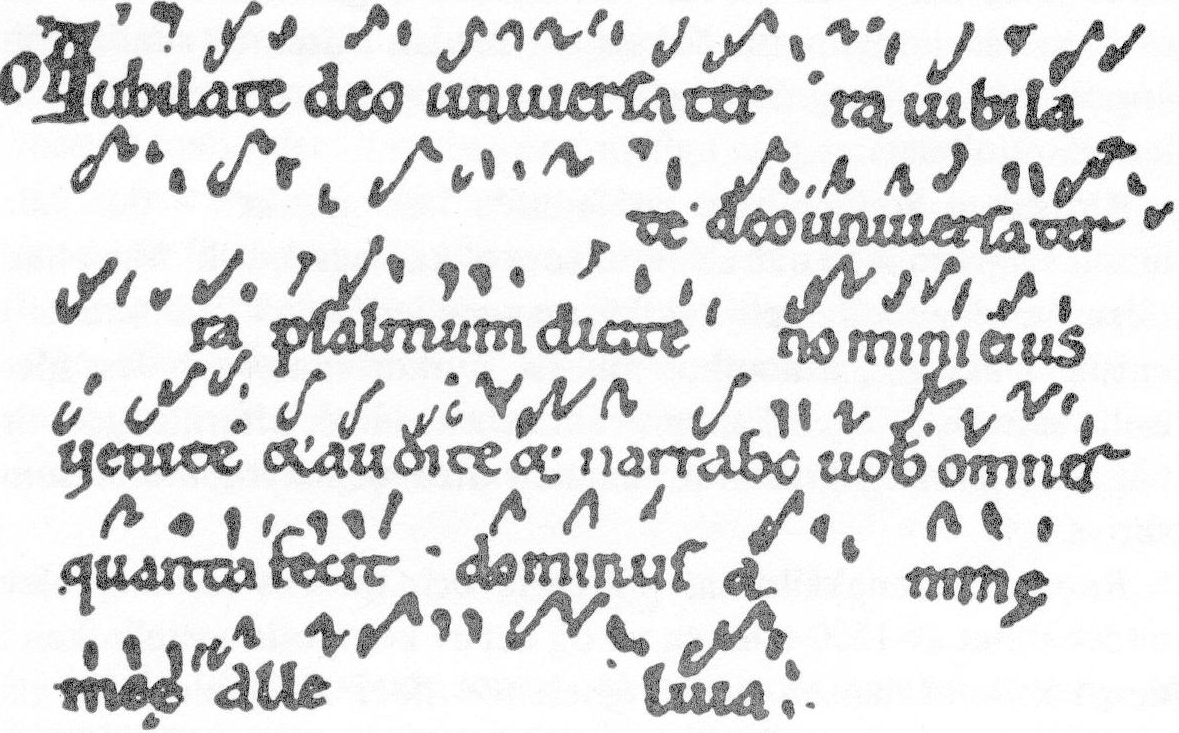 Of Iubilate deo uniuersa ter ra iubila
te deo uniuersa ter
ra psalmum dicite nomini eius
uenite & audite & narrabo uob
quanta fecit dominus a nimę
meę alle luia